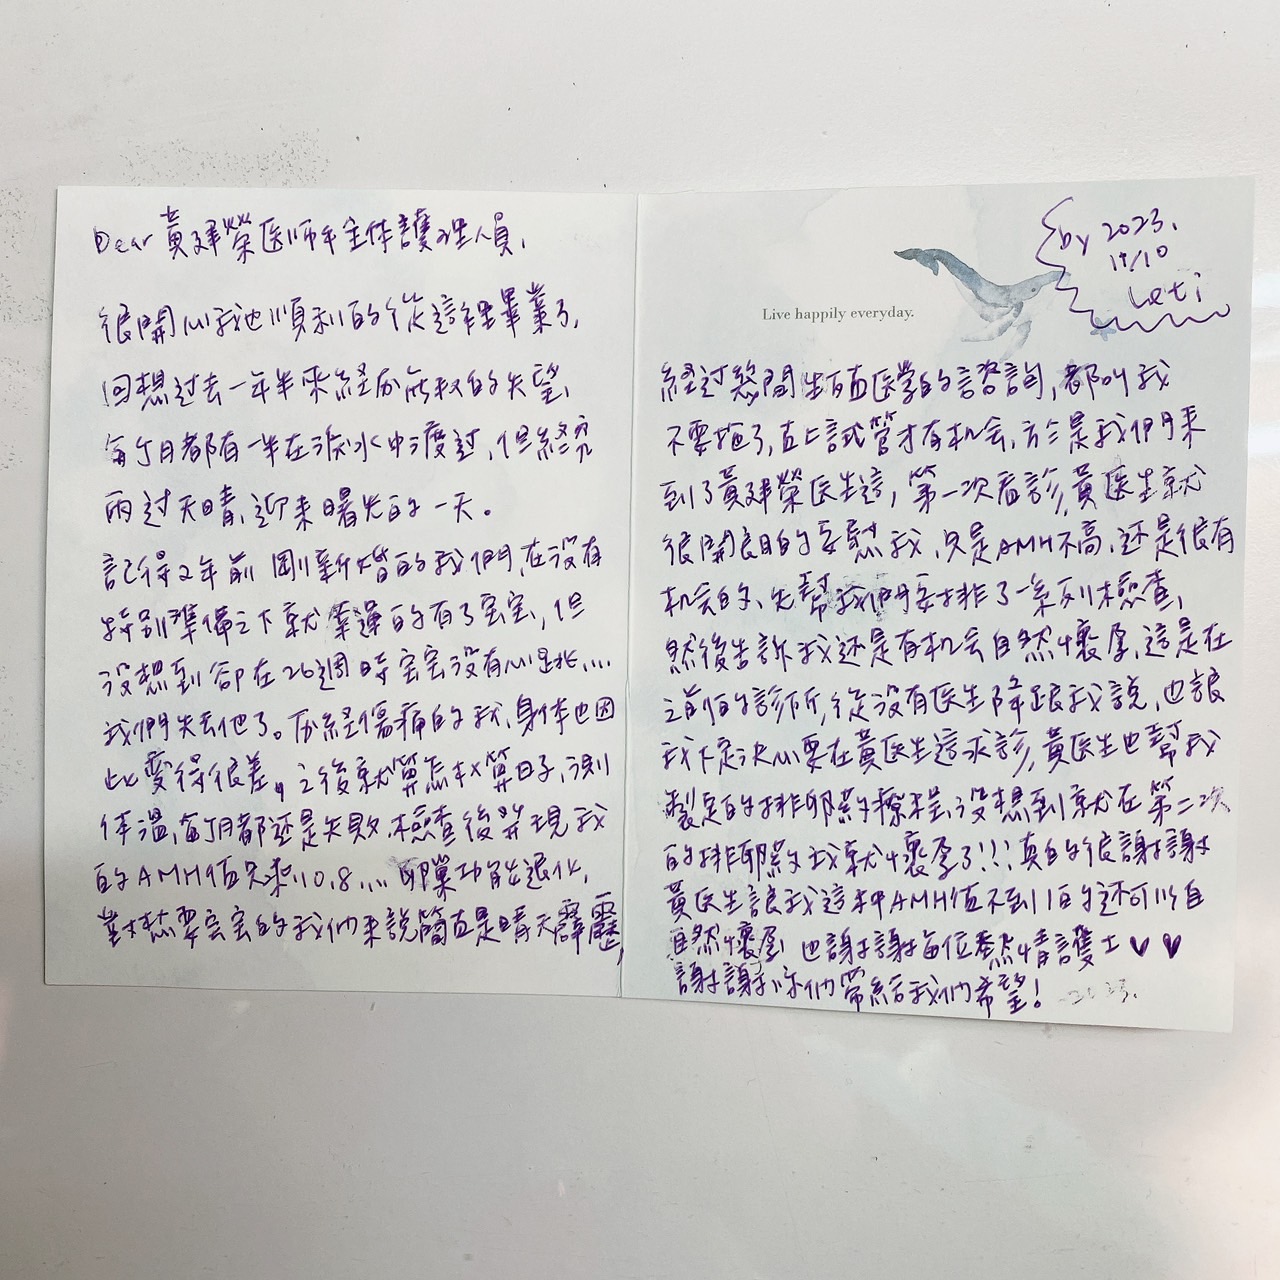 Dear 黃建榮医師&全体護理人員,
很開心我也順利的從這裡畢業了,
回想過去一年半來経历無數的失望,
每個月都有一半在淚水中渡過,但終究
雨过天晴,迎来曙光的一天。
記得2年前剛新婚的我們,在没有
特別準備之下就幸運的有了宝宝,但
没想到卻在26週時宝宝没有心跳....
我們失去他了。历経傷痛的我,身体也因
此変得很差,之後就算怎麼算日子,測
体溫,每月都还是失敗,檢查後発現我
的AMH值只剩0.8....卵巢功能退化,
對想要宝宝的我们來説簡直是晴天霹靂,
Live happily everyday.
by 2023.
11/10
Leti
経过幾間生殖医學的諮詢,都叫我
不要拖了,直上試管才有机会,於是我們來
到了黃建榮医生這,第一次看診,黃医生就
很開朗的安慰我,只是AMH不高,还是很有
机会的,先幫我們安排了一系列檢查,
然後告訴我还是有机会自然懷孕,這是在
之前的診所,從没有医生降跟我說,也讓
我下定決心要在黃医生這求診,黃医生也幫我
製定的排卵藥療程,没想到就在第二次
的排卵藥我就懷孕了!!!真的很謝謝
黃医生讓我這种AMH值不到1的还可以自
自然懷孕,也謝謝每位熱情護士♥♥
謝謝你们帶給我们希望!
2023.